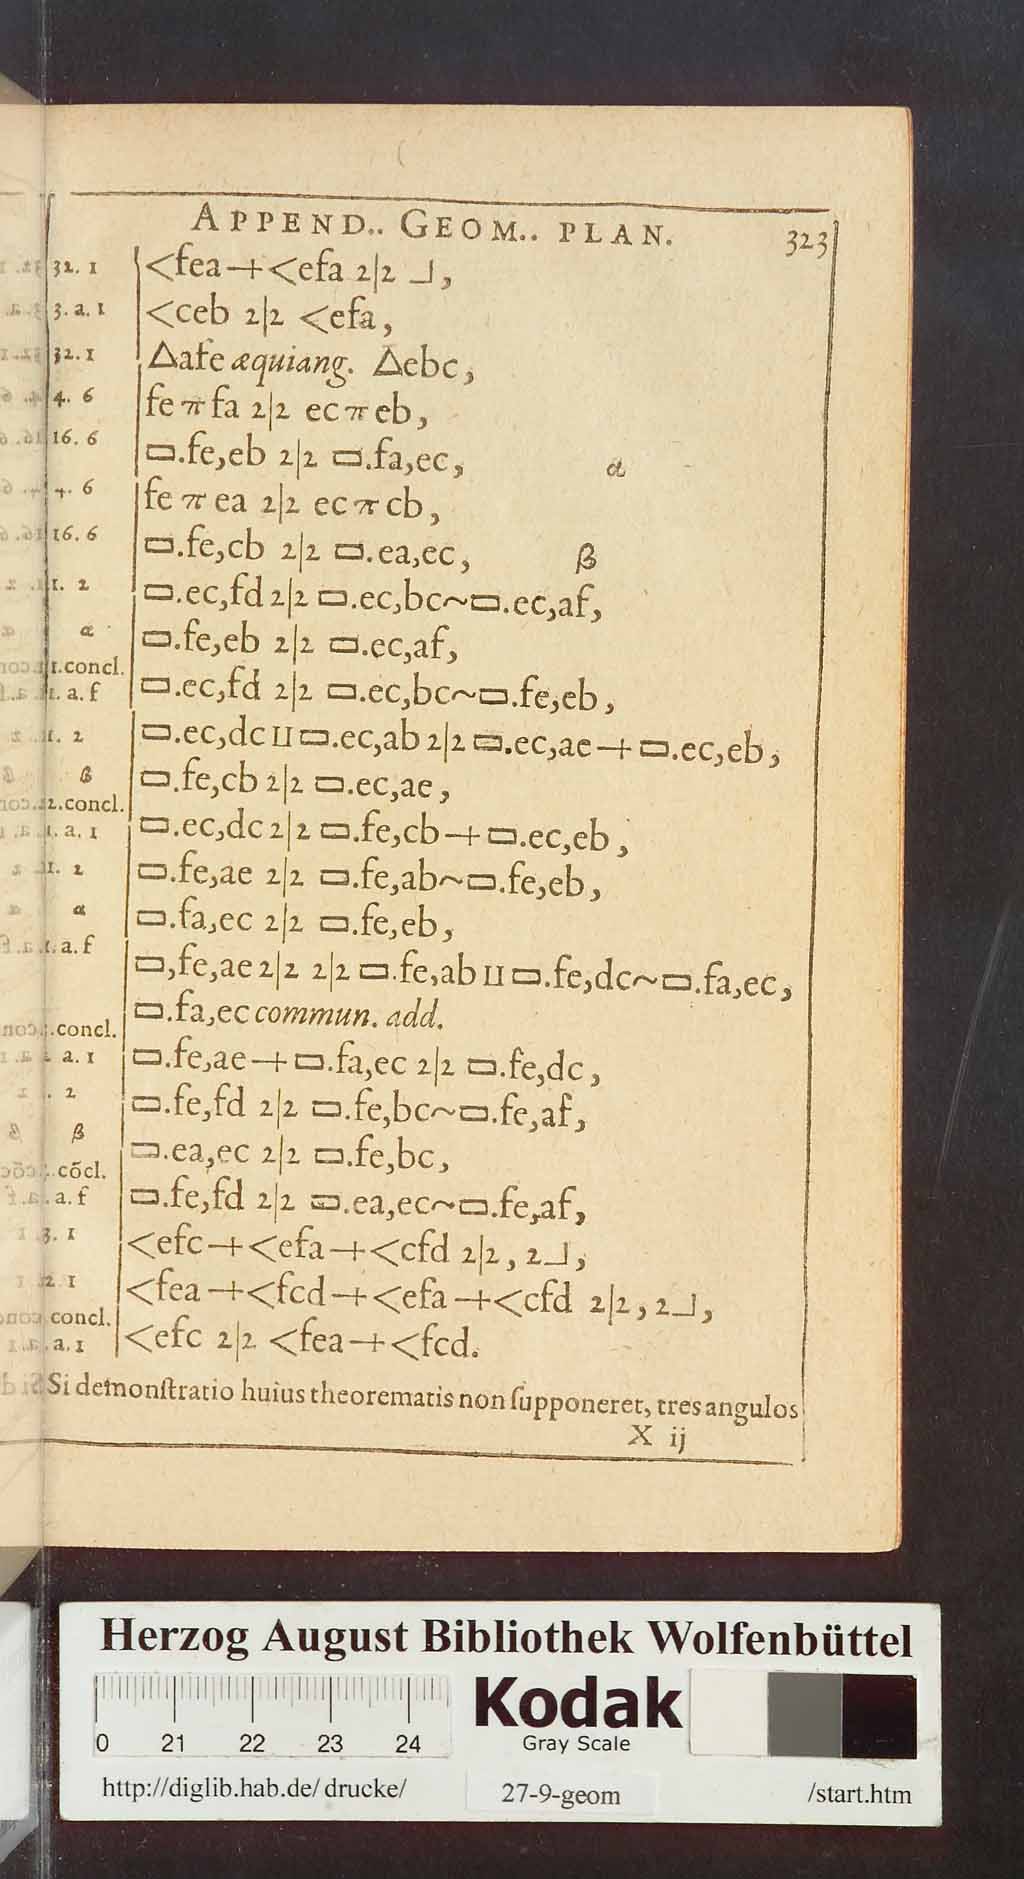 APPEND.. GEOM.. PLAN. 323
32. 1 <fea + <efa 2|2 ⅃,
3. a. 1 <ceb 2|2 <efa,
32. 1 △afe æquiang. △ebc,
4. 6 fe π fa 2|2 ec π eb,
16. 6 ▭.fe,eb 2|2 ▭.fa,ec, α
4. 6 fe π ea 2|2 ec π cb,
16. 6 ▭.fe,cb 2|2 ▭.ea,ec, β
1. 2 ▭.ec,fd 2|2 ▭.ec,bc~▭.ec,af,
α ▭.fe,eb 2|2 ▭.ec,af,
1.concl.
1. a. f ▭.ec,fd 2|2 ▭.ec,bc~▭.fe,eb,
1. 2 ▭.ec,dc ⊔ ▭.ec,ab 2|2 ▭.ec,ae + ▭.ec,eb,
β ▭.fe,cb 2|2 ▭.ec,ae,
2.concl.
1. a. 1 ▭.ec,dc 2|2 ▭.fe,cb + ▭.ec,eb,
1. 2 ▭.fe,ae 2|2 ▭.fe,ab~▭.fe,eb,
α ▭.fa,ec 2|2 ▭.fe,eb,
1. a. f
▭,fe,ae 2|2 2|2 ▭.fe,ab ⊔ ▭.fe,dc~▭.fa,ec,
▭.fa,ec commun. add.
.concl.
a. 1 ▭.fe,ae + ▭.fa,ec 2|2 ▭.fe,dc,
. 2 ▭.fe,fd 2|2 ▭.fe,bc~▭.fe,af,
β ▭.ea,ec 2|2 ▭.fe,bc,
.cõcl.
. a. f ▭.fe,fd 2|2 ▭.ea,ec~▭.fe,af,
3. 1 <efc + <efa + <cfd 2|2, 2⅃,
2 1 <fea + <fcd + <efa + <cfd 2|2, 2⅃,
concl.
. a. 1 <efc 2|2 <fea + <fcd.
Si demonſtratio huius theorematis non ſupponeret, tres angulos
X ij
Herzog August Bibliothek Wolfenbüttel
0 21 22 23 24
Kodak
Gray Scale
http://diglib.hab.de/drucke/ 27-9-geom /start.htm